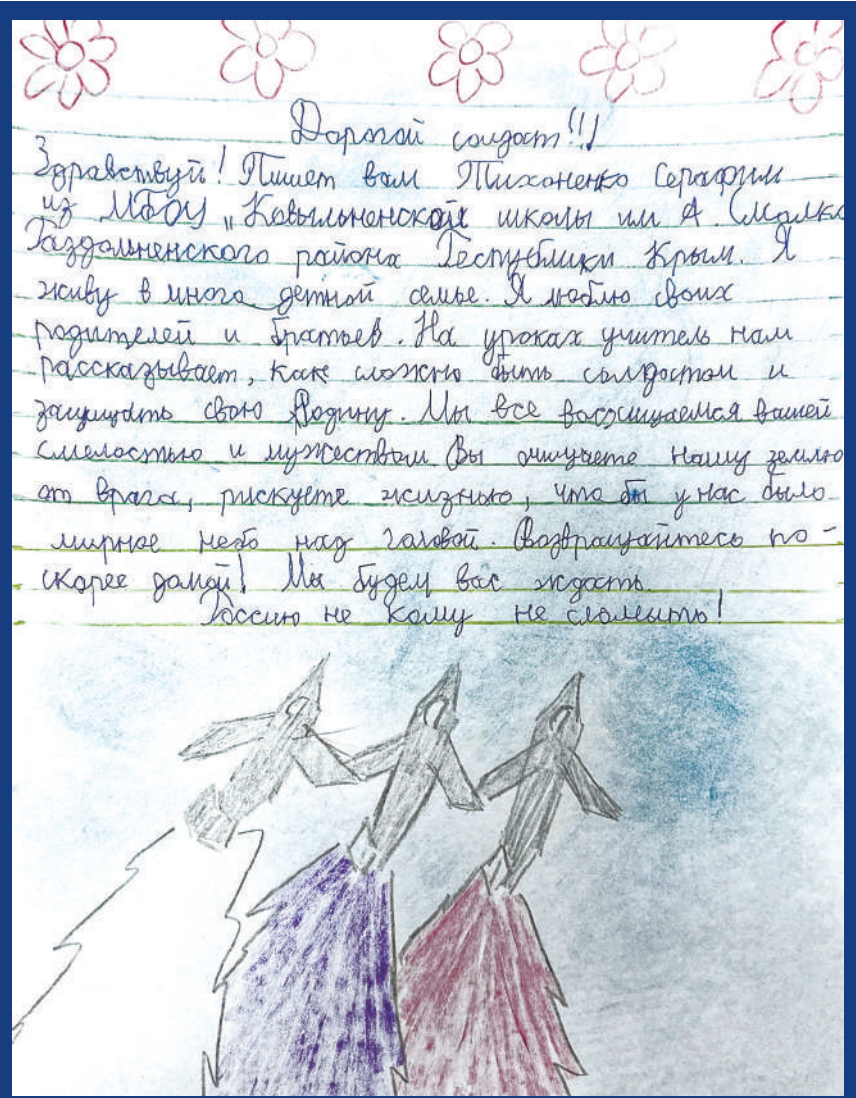 Дорогой солдат!!!
Здравствуй! Пишет вам Тихоненко Серафим
из МБОУ „Ковыльненской школы им А. Смолко
Раздольненского района Республики Крым. Я
живу в много детной семье. Я люблю своих
родителей и братьев. На уроках учитель нам
рассказывает, как сложно быть солдатом и
защищать свою Родину. Мы все восхищаемся вашей
смелостью и мужеством. Вы очищуете нашу землю
от врага, рискуете жизнью, что бы у нас было
мирное небо над головой. Возвращайтесь по-
скорее домой! Мы будем вас ждать.
Россию не кому не сломить!